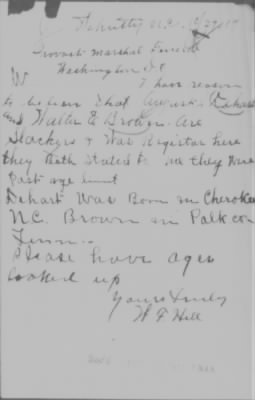 N.C. 10/27-17
Provost Marshal General
Washington D.C.
I have reason
to
and Walter E Brown are
Slackers I was Registar here
they both stated to me they were
Past age limit
Dehart Was Born in Cherokee
N.C. Brown in Polk con
Tenn.
Please have ages
looked up
Yours truly
W F Hill